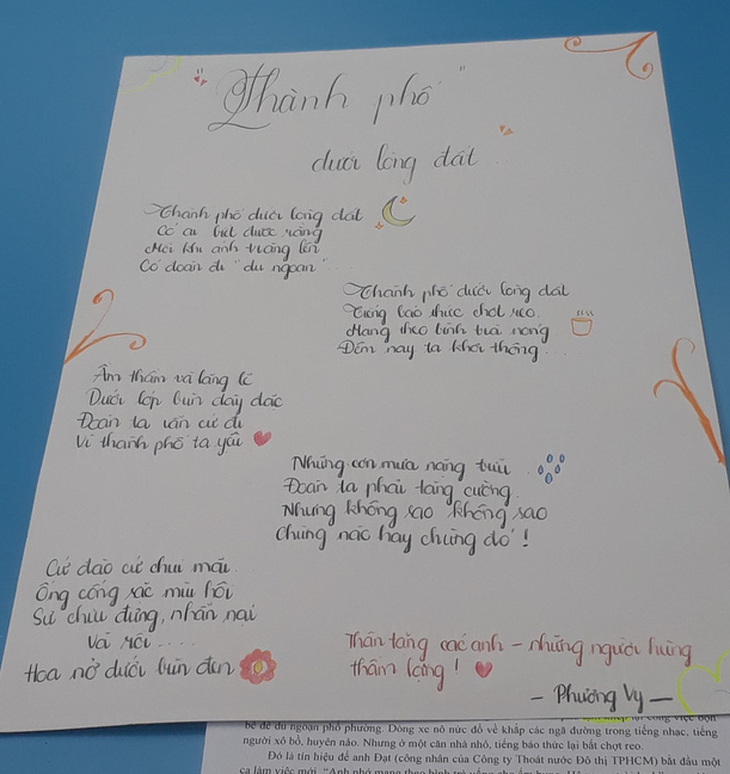 "Thành phố"
dưới lòng đất...
Thành phố dưới lòng đất
Có ai biết được rằng
Mỗi khi ánh trăng lên
Có đoàn đi "du ngoạn"...
Thành phố dưới lòng đất
Tiếng báo thức chợt reo
Mang theo bình trà nóng
Đêm nay ta khơi thông...
Âm thầm và lặng lẽ
Dưới lớp bùn dày đặc
Đoàn ta vẫn cứ đi
Vì thành phố ta yêu
Những cơn mưa nặng trĩu
Đoàn ta phải tăng cường
Nhưng không sao không sao
Chừng nào hay chừng đó!
Cứ đào cứ chui mãi
Ống cống sặc mùi hôi
Sự chịu đựng, nhẫn nại
Và rồi....
Hoa nở dưới bùn đen
Thân tặng các anh - những người hùng
thầm lặng!
- Phương Vy -
bè để du ngoạn phố phường. Dòng xe nô nức đổ về khắp các ngã đường trong tiếng nhạc, tiếng
người xô bồ, huyên náo. Nhưng ở một căn nhà nhỏ, tiếng báo thức lại bất chợt reo.
Đó là tín hiệu để anh Đạt (công nhân của Công ty Thoát nước Đô thị TPHCM) bắt đầu một
ca làm việc mới. "Anh nhớ mang theo bình trà